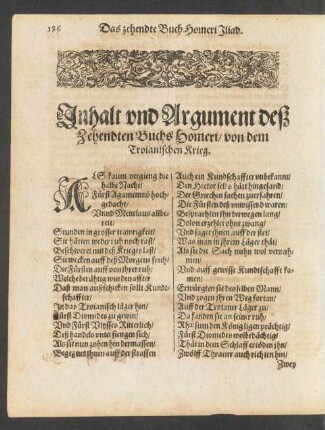 186
Das zehendte Buch Homeri Iliad.
Inhalt vnd Argument deß
Zehendten Buchs Homeri / von dem
Troianischen Krieg.
ALS kaum vergieng die
halbe Nacht /
Fürst Agamennõ hoch
gedacht /
Vnnd Menelaus allbereyt /
Stunden in grosser trawrigkeit /
Sie hätten weder ruh noch rast /
Beschweret mit des Krieges last /
Sie wecken auff deß Morgens fruh /
Die Fürsten auff von ihrer ruh /
Welche berahtig wurden after
Daß man außschicken sollte Kundschaffter /
In das Troianisch läger hin /
Fürst Diomedes zu gewin /
Vnd Fürst Vlysses Ritterlich /
Deß handels unterfiengen sich /
Als sie nun zohen hin dermassen /
Begegnet ihnen auff der strassen
Auch ein Kundschaffter vnbekannt /
Den Hector selbs hätt hingesand /
Der Griechen sachen zuerfahren /
Die Fürsten deß vnwissend waren /
Besprachten ihn derwegen lang /
Dolon erzehlet ohne zwang /
Vnd saget ihnen auff der stet /
Was man in ihrem Läger thät /
Als sie die Sach nuhn wol vernahmen /
Vnd auff gewisse Kundschafft kamen /
Erwürgten sie denselben Mann /
Vnd zogen ihren Weg fortan /
Auff der Troianer Läger zu /
Da fanden sie an seiner ruh /
Rhæsum den Königlichen prächtig /
Fürst Diomedes wolbedächtig /
Thät in dem Schlaff ertöden ihn /
Zwölff Thracier auch richten hin /
Zwey